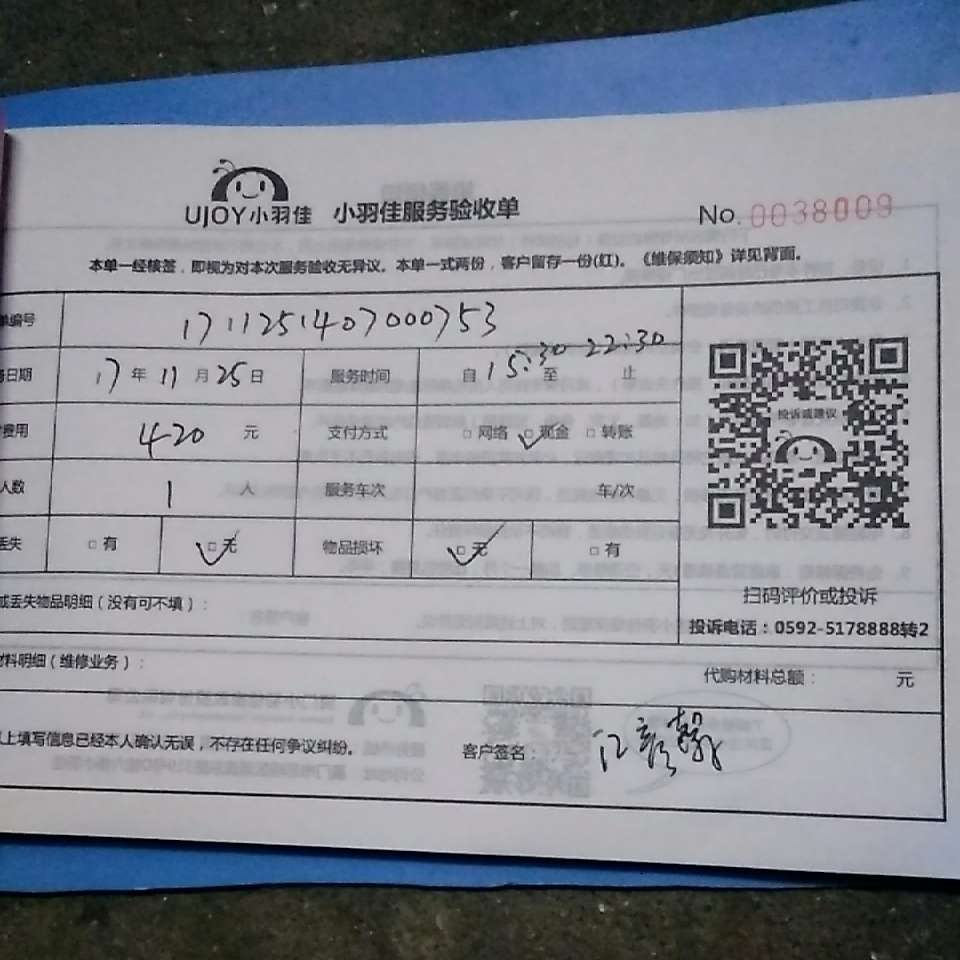 UJOY小羽佳 小羽佳服务验收单 No. 0038009
本单一经核签，即视为对本次服务验收无异议。本单一式两份，客户留存一份(红)。《维保须知》详见背面。
单编号 1711251407000753
务日期 17 年 11 月 25 日 服务时间 自 15:30 至 22:30 止
费用 420 元 支付方式 □网络 □现金 □转账
人数 1 人 服务车次 车/次
丢失 □有 □无 物品损坏 □无 □有
投诉或建议
扫码评价或投诉
或丢失物品明细（没有可不填）：
投诉电话：0592-5178888转2
材料明细（维修业务）： 代购材料总额： 元
以上填写信息已经本人确认无误，不存在任何争议纠纷。 客户签名：